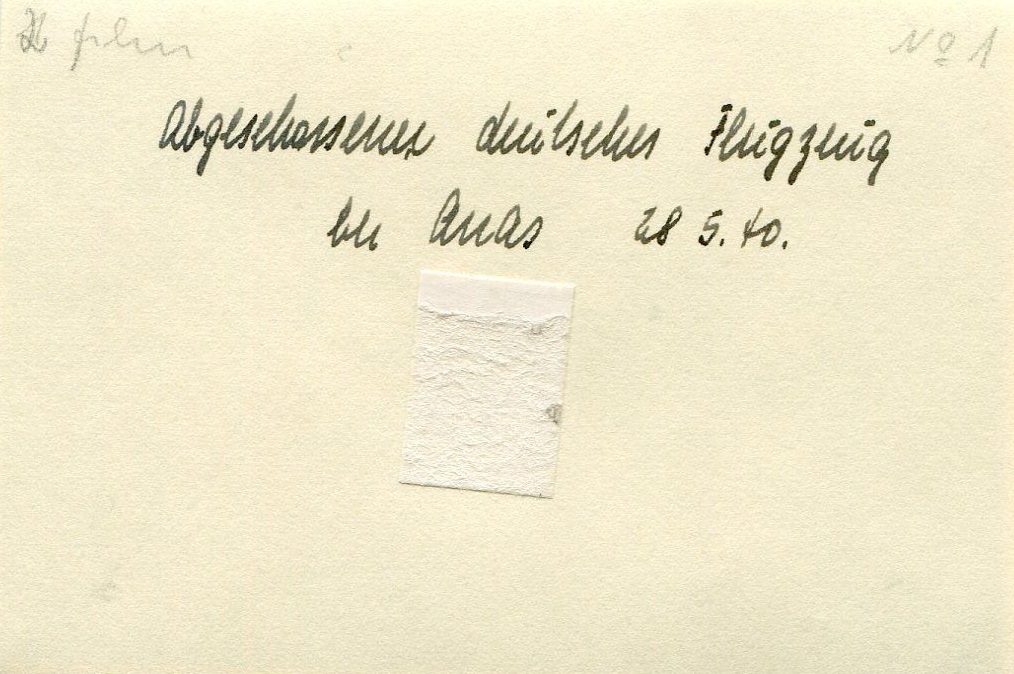 film No 1
Abgeschossenes deutsches Flugzeug
bei Arras 28 5. 40.